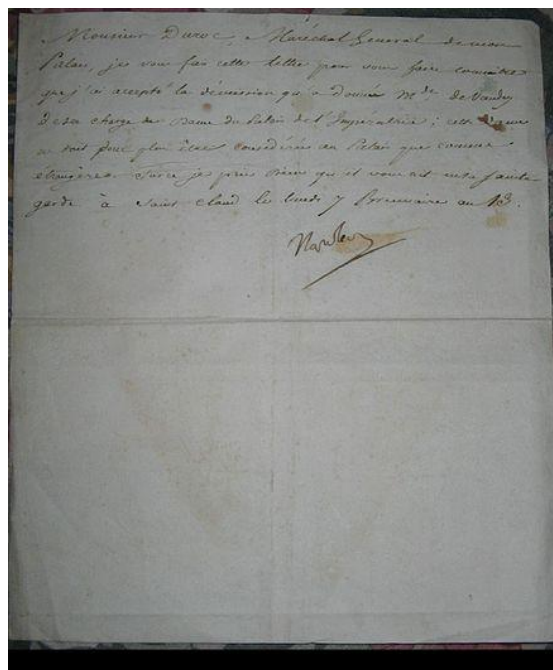 Monsieur Duroc, Maréchal General de mon
Palais, je vous fais cette lettre pour vous faire connaitre
que j'ai accepté la démission qu'a donnée Mde de Vaudey
de sa charge de Dame du Palais de l'Imperatrice; cette Dame
ne doit plus être considérée au Palais que comme
étrangère. Surce je prie Dieu qu'il vous ait en sa sainte
garde à Saint Cloud le lundi 7 Brumaire an 13.
Napoleon